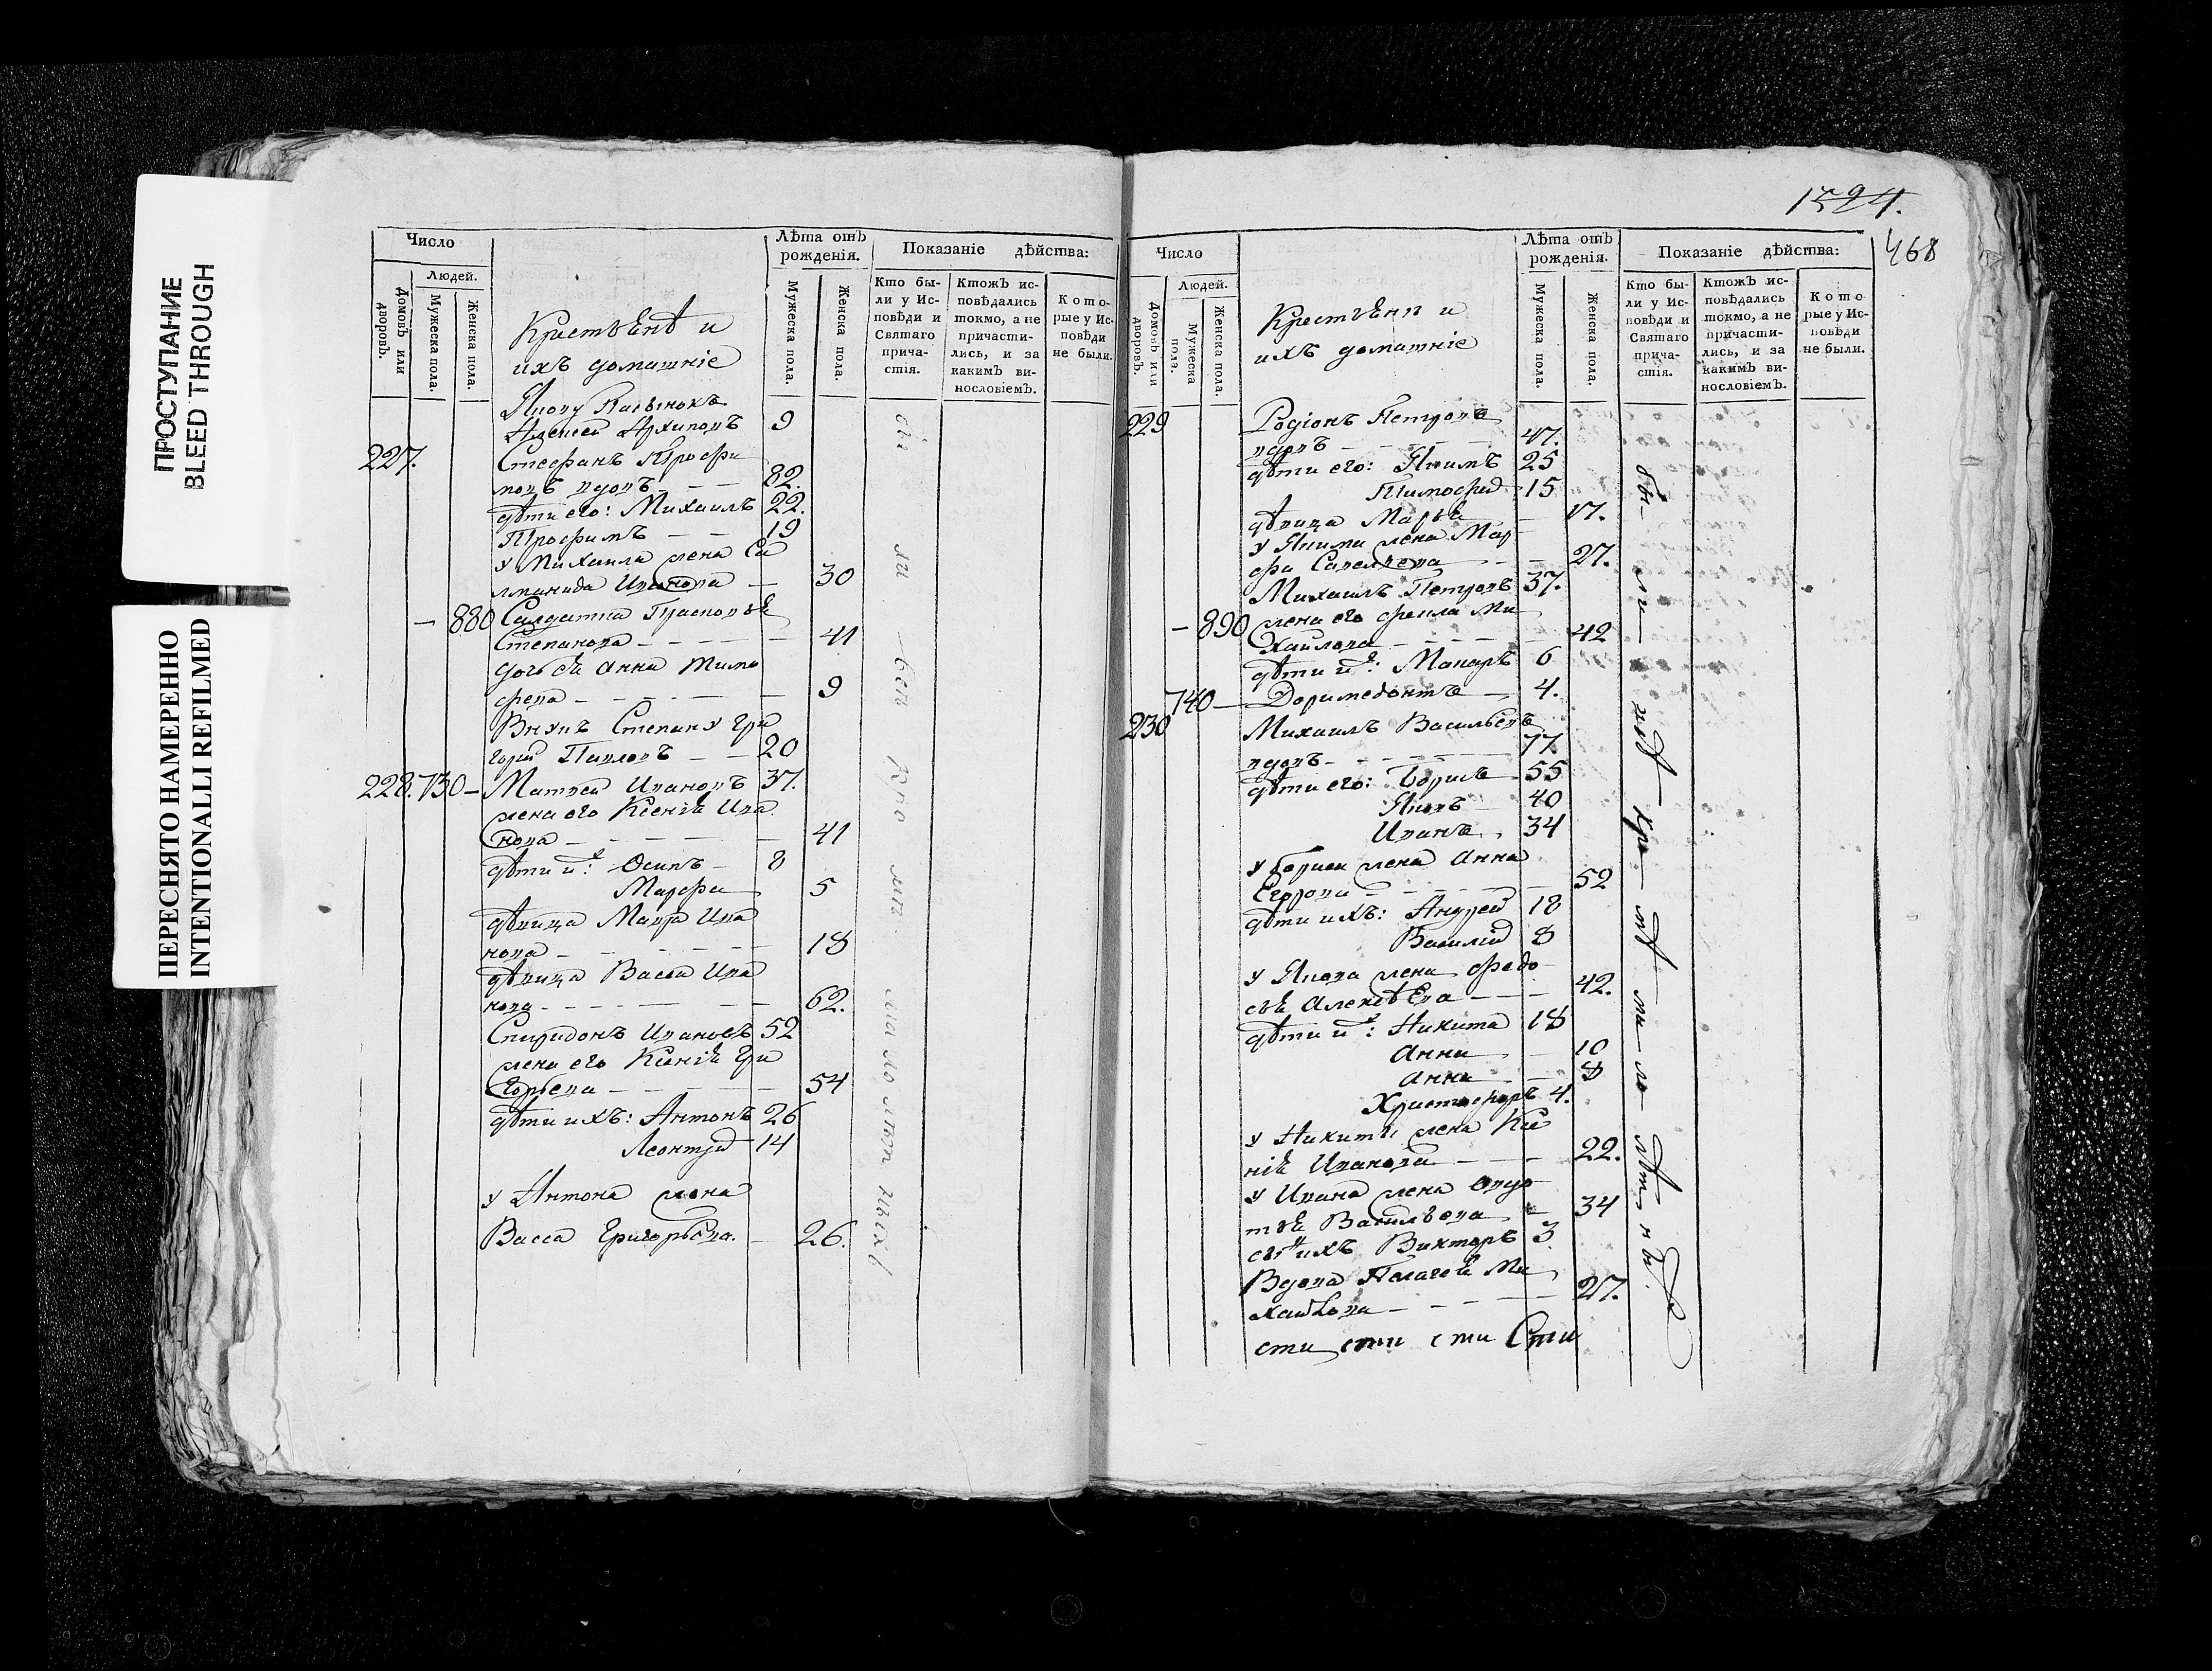 ПРОСТУПАНИЕ
BLEED THROUGH
ПЕРЕСНЯТО НАМЕРЕННО
INTENTIONALLI REFILMED
Число
Людей.
Домовъ или дворовъ.
Мужеска пола.
Женска пола.
Крестьянѣ и
ихъ домашніе
Лѣта отъ рожденія.
Мужеска пола.
Женска пола.
Показаніе дѣйства:
Кто были у Исповѣди и Святаго причастія.
Ктожъ исповѣдались токмо, а не причастились, и за какимъ винословіемъ.
Которые у Исповѣди не были.
Алексей Архиповъ 9
227. Стефанъ Трофи
мовъ вдовъ 82.
дѣти его: Михаилъ 22.
Трофимъ 19
у Михаила жена Со
ломанида Иванова 30
880 Салдатка Прасковья
Степанова 41
дочь ея Анна Тимо
феева 9
Внукъ Степану Гри
горій Павловъ 20
228. 730 Матвей Ивановъ 37.
жена его Ксенія Ива
нова 41
дѣти ихъ: Осипъ 8
Марфа 5
дѣвица Мавра Ива
нова 18
дѣвица Васса Ива
нова 62.
Спиридонъ Ивановъ 52
жена его Ксенія Гри
горьева 54
дѣти ихъ: Антонъ 26
Леонтій 14
у Антона жена
Васса Григорьева. 26.
1524.
468
Число
Людей.
Домовъ или дворовъ.
Мужеска пола.
Женска пола.
Крестьяни и
ихъ домашніе
Лѣта отъ рожденія.
Мужеска пола.
Женска пола.
Показаніе дѣйства:
Кто были у Исповѣди и Святаго причастія.
Ктожъ исповѣдались токмо, а не причастились, и за какимъ винословіемъ.
Которые у Исповѣди не были.
229 Родіонъ Петровъ
вдовъ 47.
дѣти его: Якимъ 25
Тимофей 15
дѣвица Марья 17.
у Якима жена Мар
фа Савельева 27.
Михаилъ Петровъ 37.
890 жена его Фекла Ми
хайлова 42
дѣти ихъ: Макаръ 6
740 Доримедонтъ 4.
230 Михаилъ Васильевъ
вдовъ 77.
дѣти его: Борисъ 55
Яковъ 40
Иванъ 34
у Бориса жена Анна
Егорова 52
дѣти ихъ: Андрей 18
Василій 8
у Якова жена Федо
сья Алексѣева 42.
дѣти ихъ: Никита 18
Анна 10
Анна 8
Христофоръ 4.
у Никиты жена Ксе
нія Иванова 22.
у Ивана жена Авдо
тья Васильева 34
сынъ ихъ Викторъ 3
Вдова Пелагея Ми
хайлова 27.
сти сти сти Сти
сіи ли всѣ кро мѣ малолѣтныхъ
бы ли всѣ кро мѣ ма ло лѣт ны.